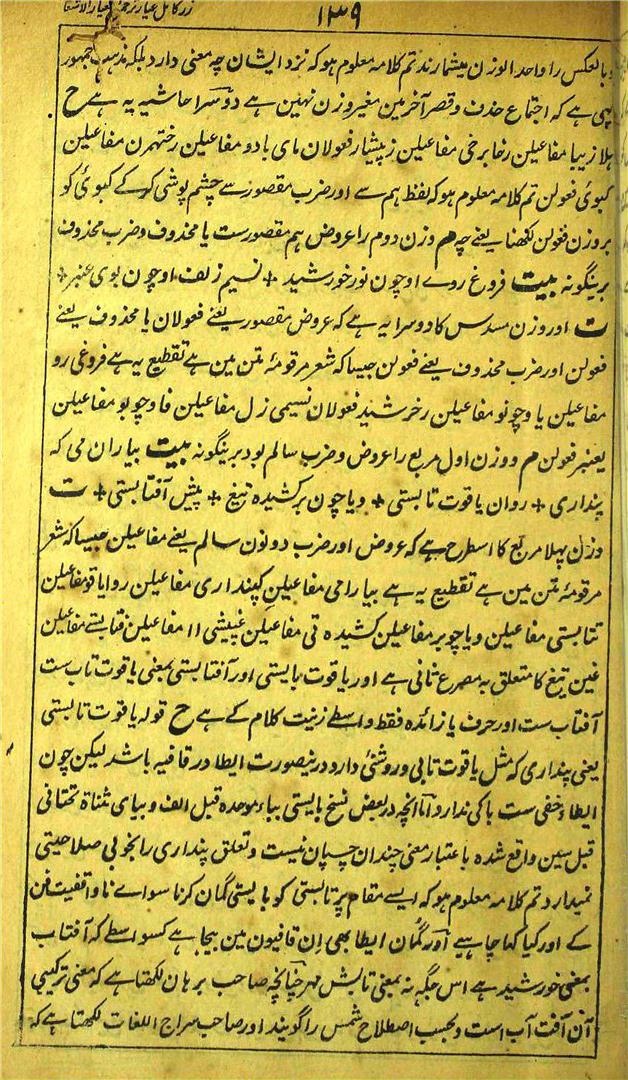 زر کامل عیار ترجمۂ معیار الاشعار
۱۳۹
و بالعکس را واحد الوزن میشمارند تم کلامہ معلوم ہو کہ نزد ایشان چہ معنی دارد بلکہ مذہب جمہور
یہی ہے کہ اجتماع حذف و قصر آخر مین مغیر وزن نہین ہے دوسرا حاشیہ یہ ہے ح
ہلا زیبا مفاعیلن رخا برخی مفاعیلن زپیشار فعولان مای بادو مفاعیلن رختہرن مفاعیلن
کبوئی فعولن تم کلامہ معلوم ہو کہ لفظ ہم سے اور ضرب مقصور سے چشم پوشی کر کے کبوئی کو
بروزن فعولن لکھنا یعنے چہ م وزن دوم را عروض ہم مقصورست یا محذوف و ضرب محذوف
برینگونہ بیت فروغ روے او چون نور خورشید + نسیم زلف او چون بوی عنبر +
ت اور وزن مسدس کا دوسرا یہ ہے کہ عروض مقصور یعنے فعولان یا محذوف یعنے
فعولن اور ضرب محذوف یعنے فعولن جیسا کہ شعر مرقومۂ متن مین ہے تقطیع یہ ہے فروغی رو
مفاعیلن یا وچونو مفاعیلن رخرشید فعولان نسیمی زل مفاعیلن فاوچوبو مفاعیلن
یعنبر فعولن م و وزن اول مربع را عروض و ضرب سالم بود برینگونہ بیت بیار ان می کہ
پنداری + روان یاقوت تابستی + و یا چون برکشیدہ تیغ + پیش آفتابستی + ت
وزن پہلا مربع کا اسطرح ہے کہ عروض اور ضرب دونون سالم یعنے مفاعیلن جیسا کہ شعر
مرقومۂ متن مین ہے تقطیع یہ ہے بیارامی مفاعیلن کپنداری مفاعیلن روایاقو مفاعیلن
تتابستی مفاعیلن و یا چوبر مفاعیلن کشیدہ تی مفاعیلن غپیشی اا مفاعیلن فتابستے مفاعیلن
غین تیغ کا متعلق بہ مصرع ثانی ہے اور یاقوت بایستی اور آفتابستی بمعنی یاقوت تاب ست
آفتاب ست اور حرف یا زائدہ فقط واسطے زینت کلام کے ہے ح قولہ یاقوت تابستی
یعنی پنداری کہ مثل یاقوت تابی و روشنئ دارد درینصورت ایطا در قافیہ باشد لیکن چون
ایطاء خفی ست باکی ندارد اما آنچہ در بعض نسخ بایستی بباء موحدہ قبل الف و بیای مثناۃ تحتانی
قبل سین واقع شدہ باعتبار معنی چندان چسپان نیست و تعلق پنداری را بخوبی صلاحیتی
نمیدارد تم کلامہ معلوم ہو کہ ایسے مقام پر تابستی کو بایستی گمان کرنا سواے ناواقفیت فن
کے اور کیا کہا چاہیے اور گمان ایطا بھی ان قافیون مین بیجا ہے کسواسطے کہ آفتاب
بمعنی خورشید ہے اس جگہہ نہ بمعنی تابش مہر چنانچہ صاحب برہان لکھتا ہے کہ معنی ترکیبی
آن آفت آب است و بحسب اصطلاح شمس را گویند اور صاحب سراج اللغات لکھتا ہے کہ